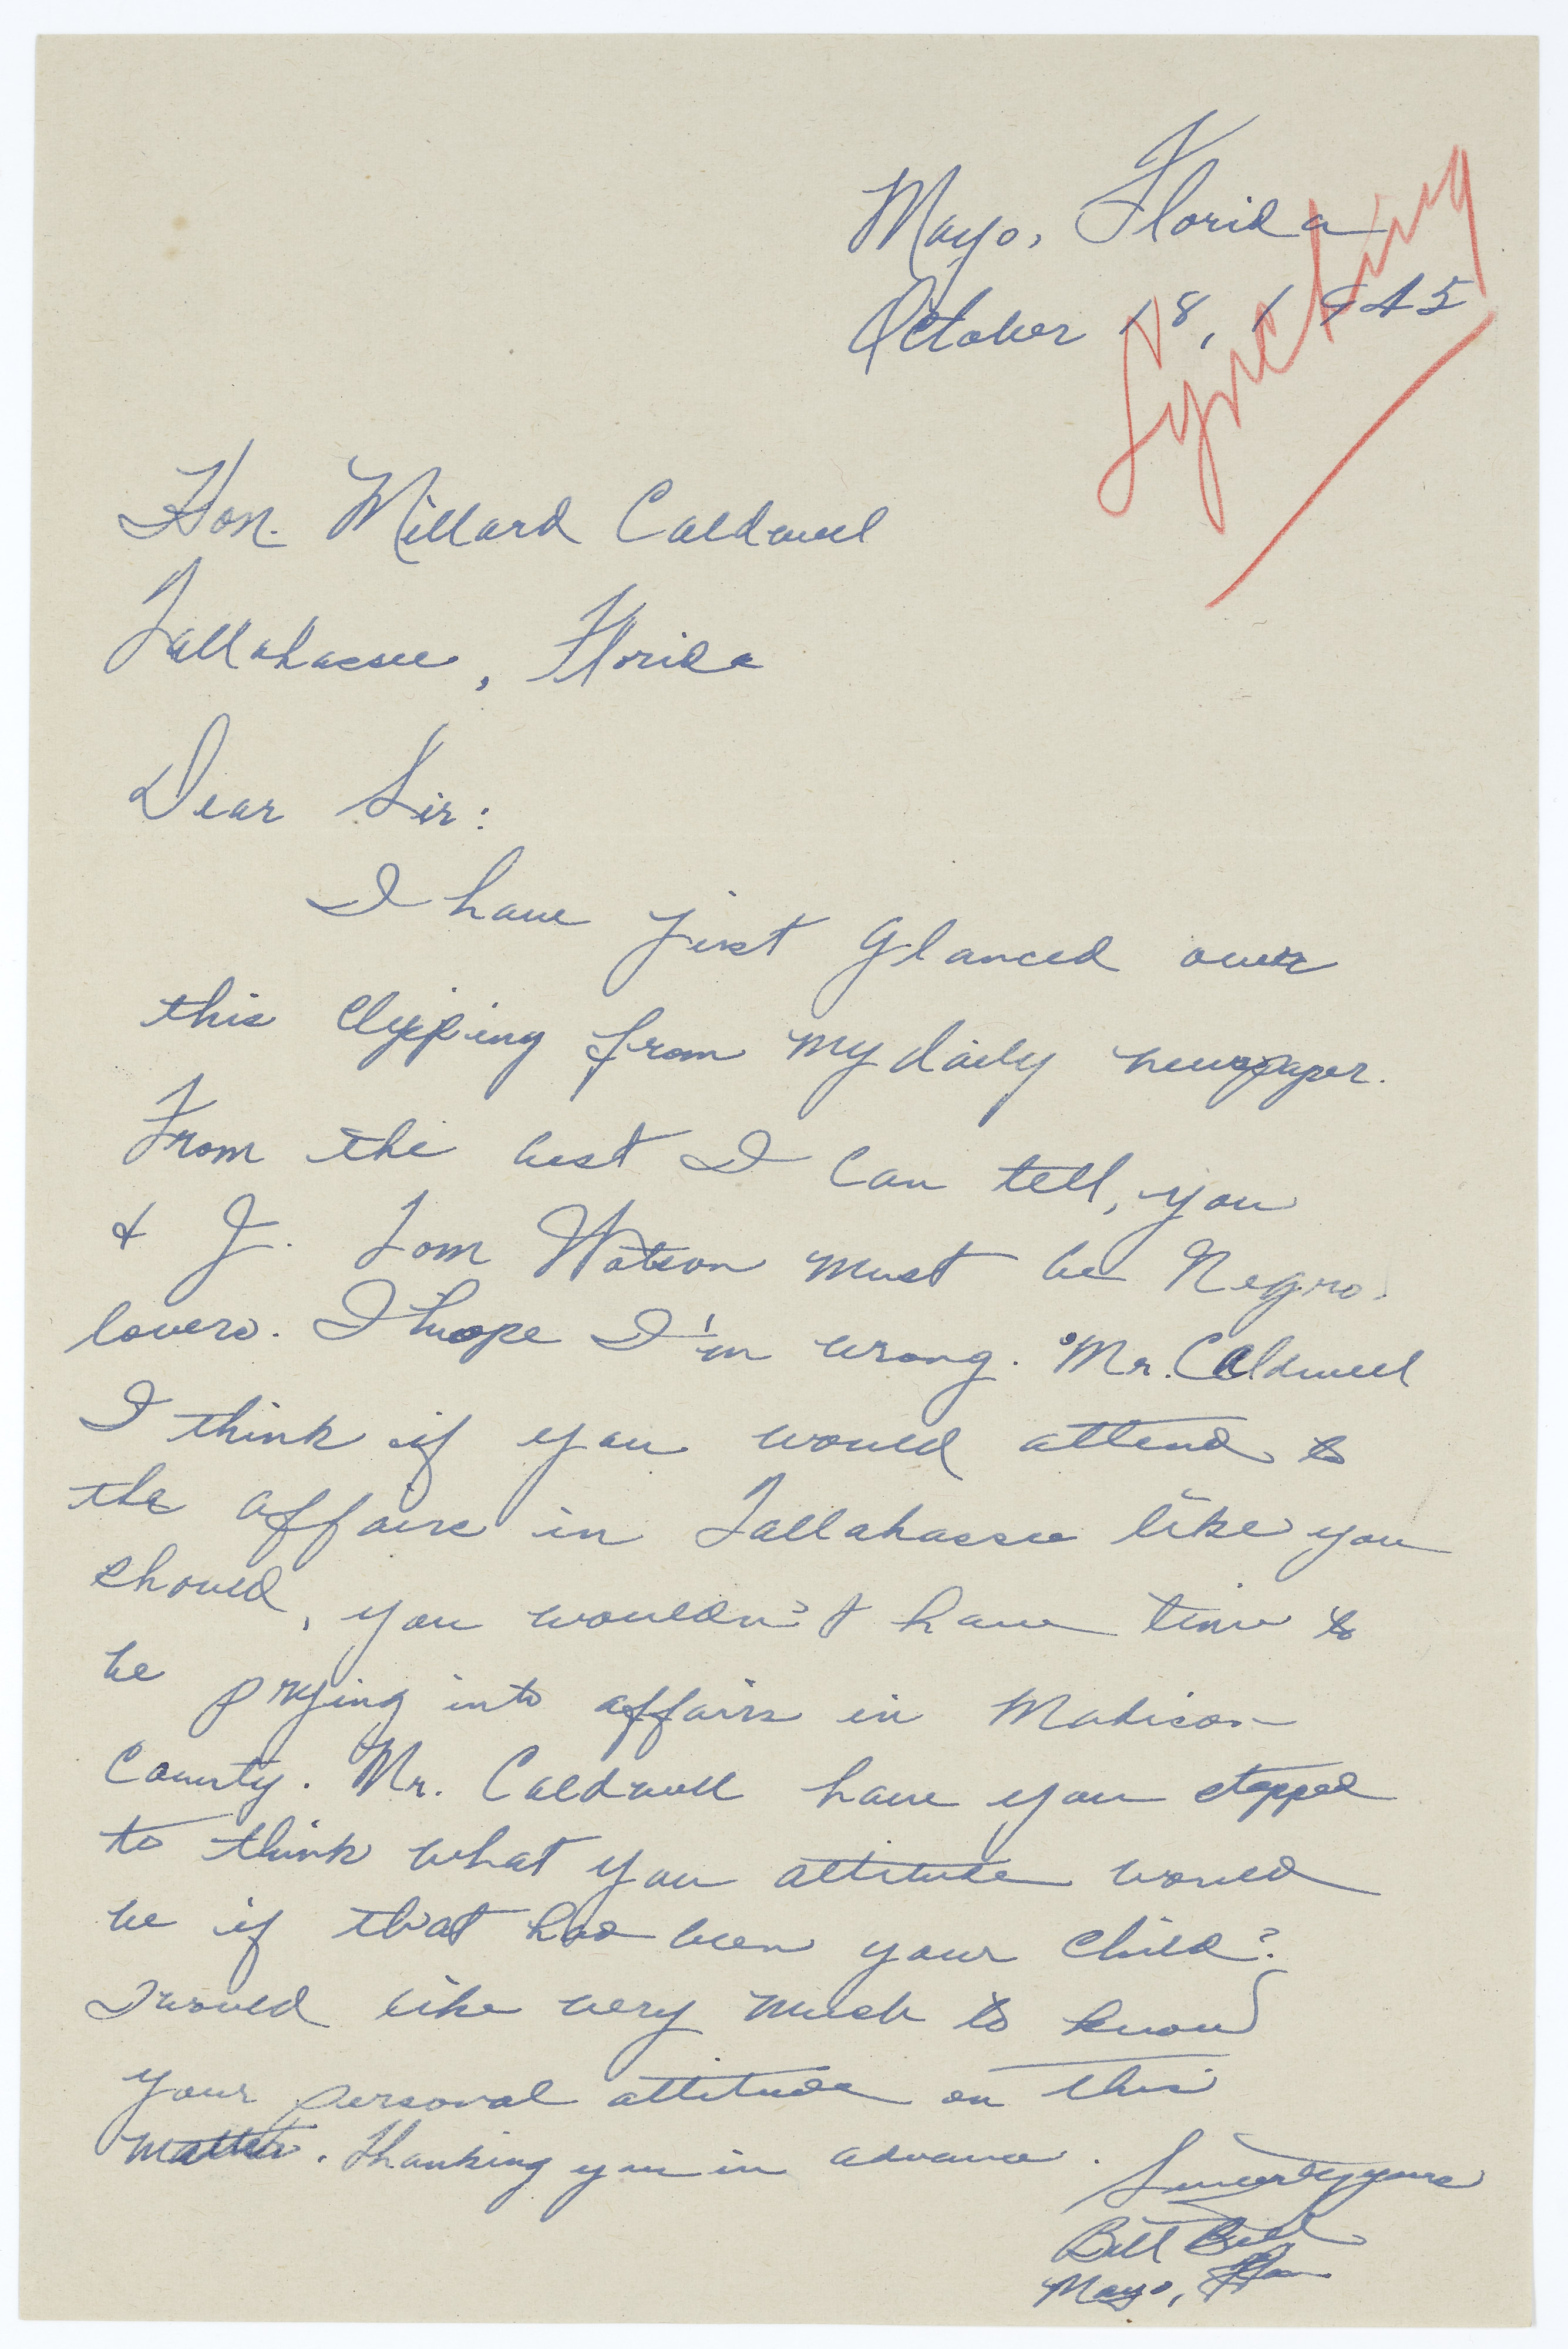 Mayo, Florida
October 18, 1945
Lynching
Hon. Millard Caldwell
Tallahassee, Florida
Dear Sir:
I have just glanced over
this clipping from my daily newspaper.
From the best I can tell, you
& J. Tom Watson must be Negro
lovers. I hope I'm wrong. Mr. Caldwell
I think if you would attend to
the affairs in Tallahassee like you
should, you wouldn't have time to
be prying into affairs in Madison
County. Mr. Caldwell have you stopped
to think what you attitude would
be if that had been your child?
I would like very much to know
your personal attitude on this
matter. Thanking you in advance.
Sincerely yours
Bill Bell
Mayo, Fla